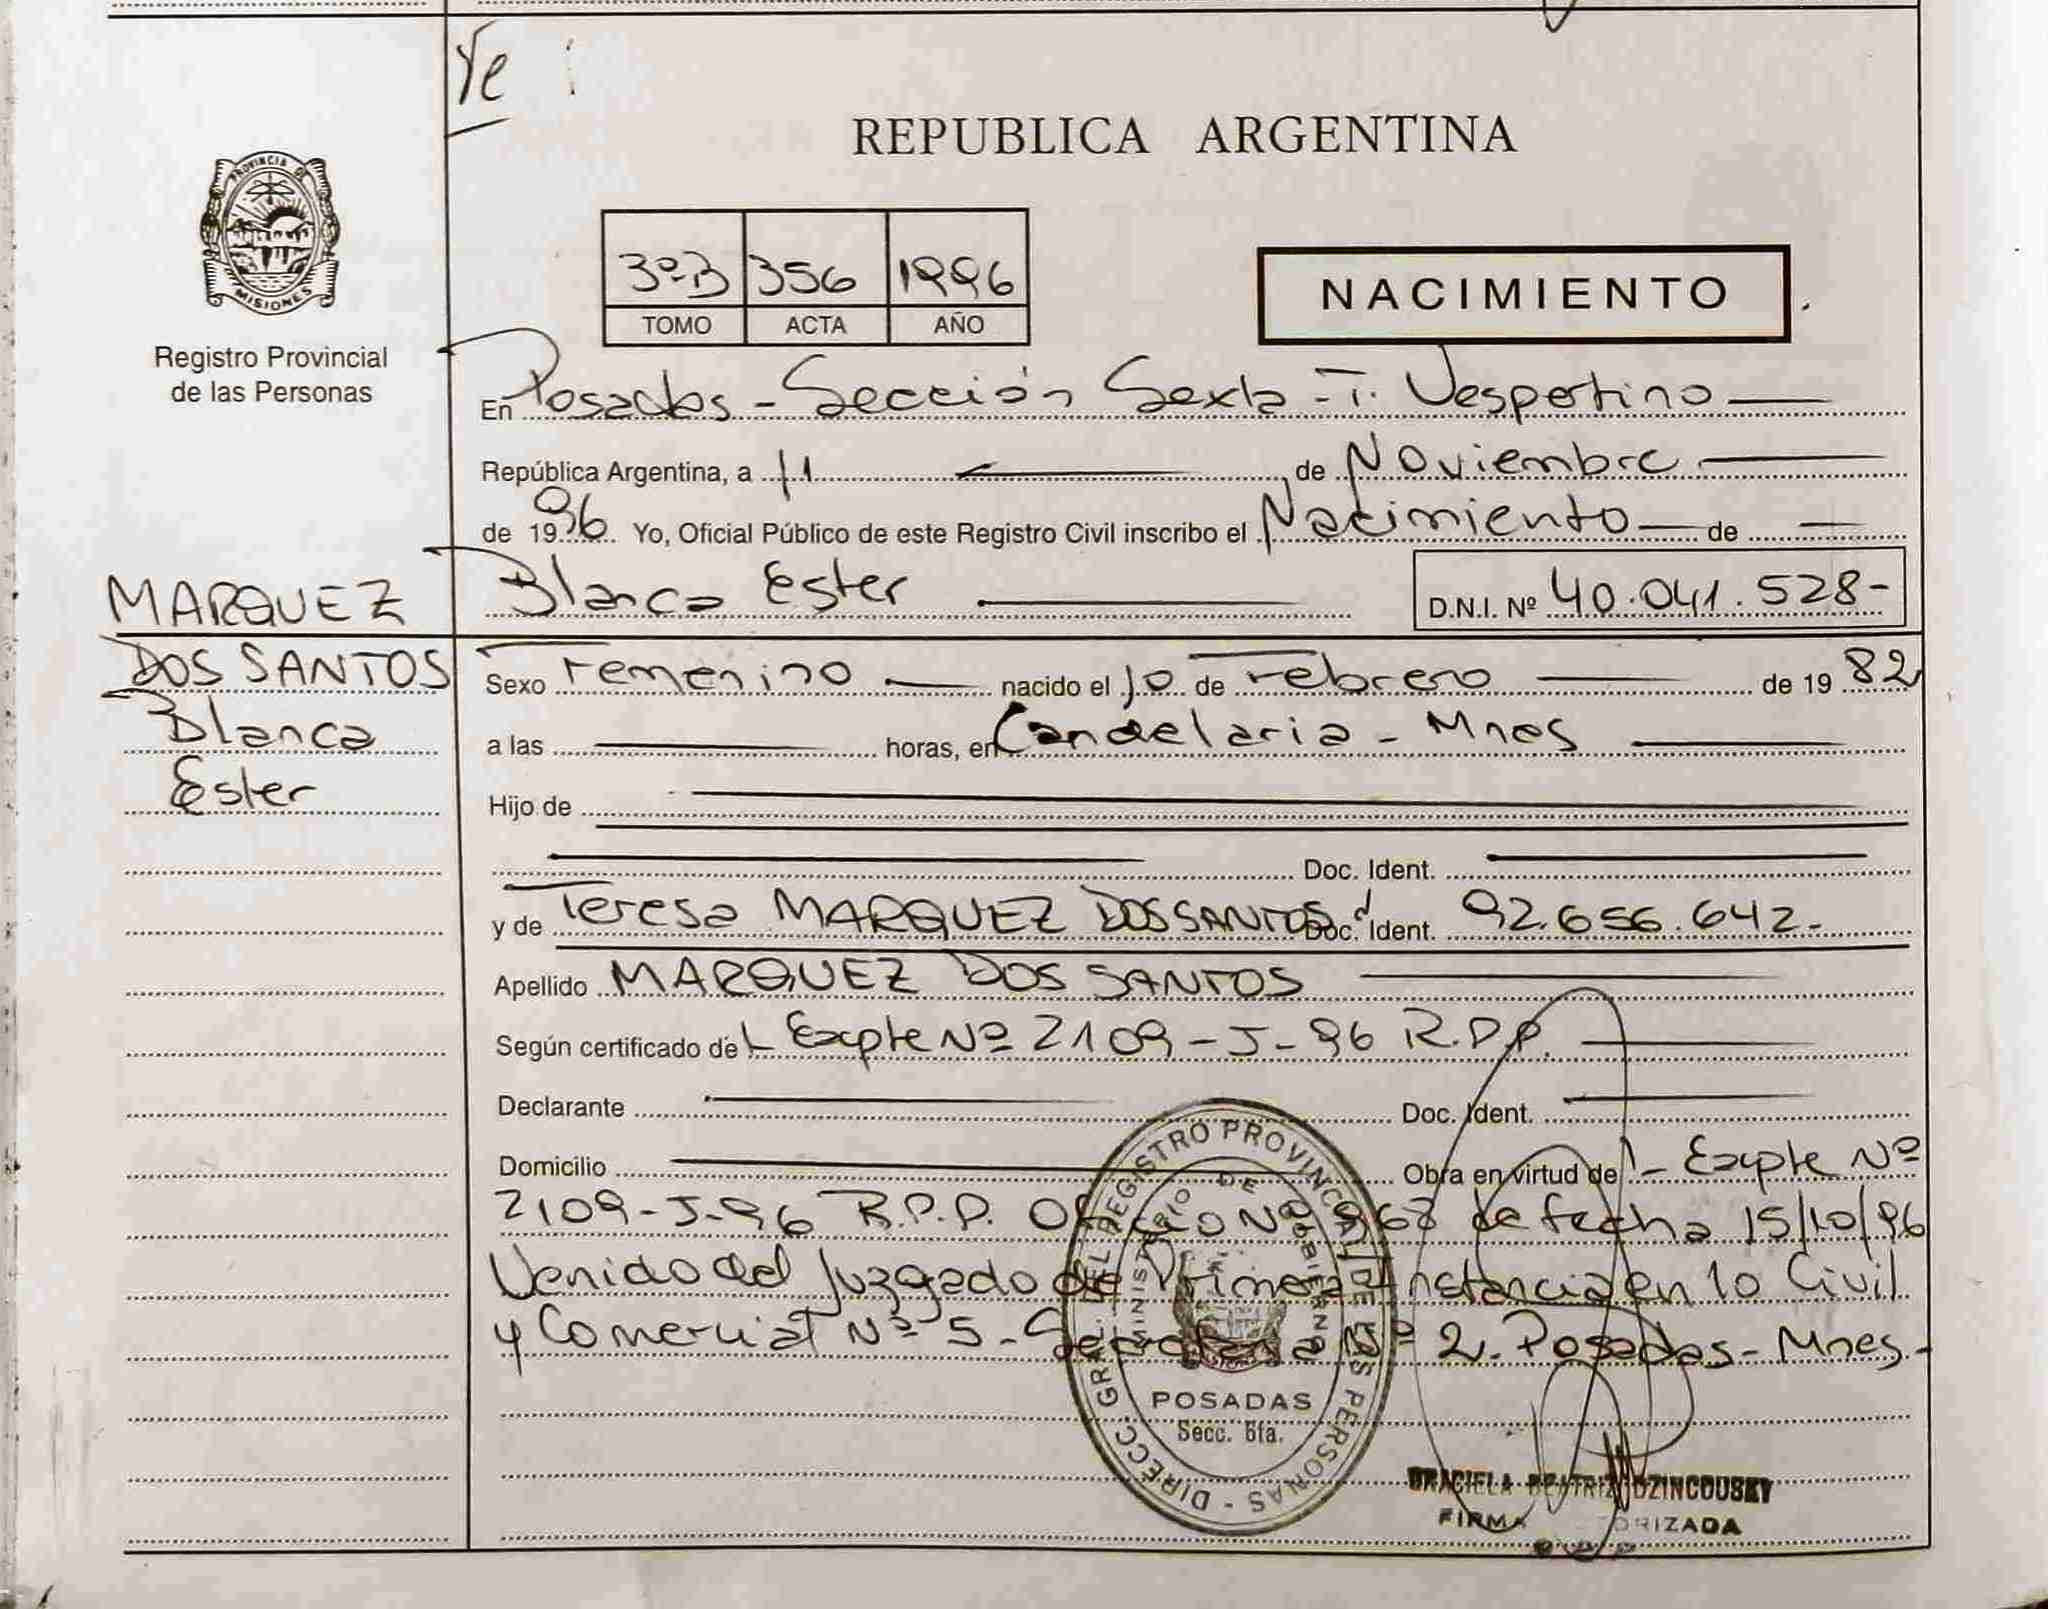 Ye :
PROVINCIA DE
MISIONES
Registro Provincial
de las Personas
REPUBLICA ARGENTINA
3º-B 356 1996
TOMO ACTA AÑO
NACIMIENTO
En Posadas - Sección Sexta - T. Vespertino
República Argentina, a 11 de Noviembre
de 1996 Yo, Oficial Público de este Registro Civil inscribo el Nacimiento de
Blanca Ester D.N.I. Nº 40.041.528-
MARQUEZ
DOS SANTOS
Blanca
Ester
Sexo Femenino nacido el 10 de Febrero de 1982
a las horas, en Candelaria - Mnes
Hijo de
Doc. Ident.
y de Teresa MARQUEZ DOS SANTOS Doc. Ident. 92.656.642.-
Apellido MARQUEZ DOS SANTOS
Según certificado de L Expte Nº 2109-J-96 R.P.P.
Declarante Doc. Ident.
Domicilio Obra en virtud de l- Expte Nº
2109-J-96 R.P.P. Oficio Nº de fecha 15/10/96
Venido del Juzgado de Primera Instancia en lo Civil
y Comercial Nº 5 - Secretaria Nº 2. Posadas - Mnes -
DIRECC. GRAL. DEL REGISTRO PROVINCIAL DE LAS PERSONAS -
MINISTERIO DE GOBIERNO
POSADAS
Secc. 6ta.
GRACIELA BEATRIZ
FIRMA AUTORIZADA